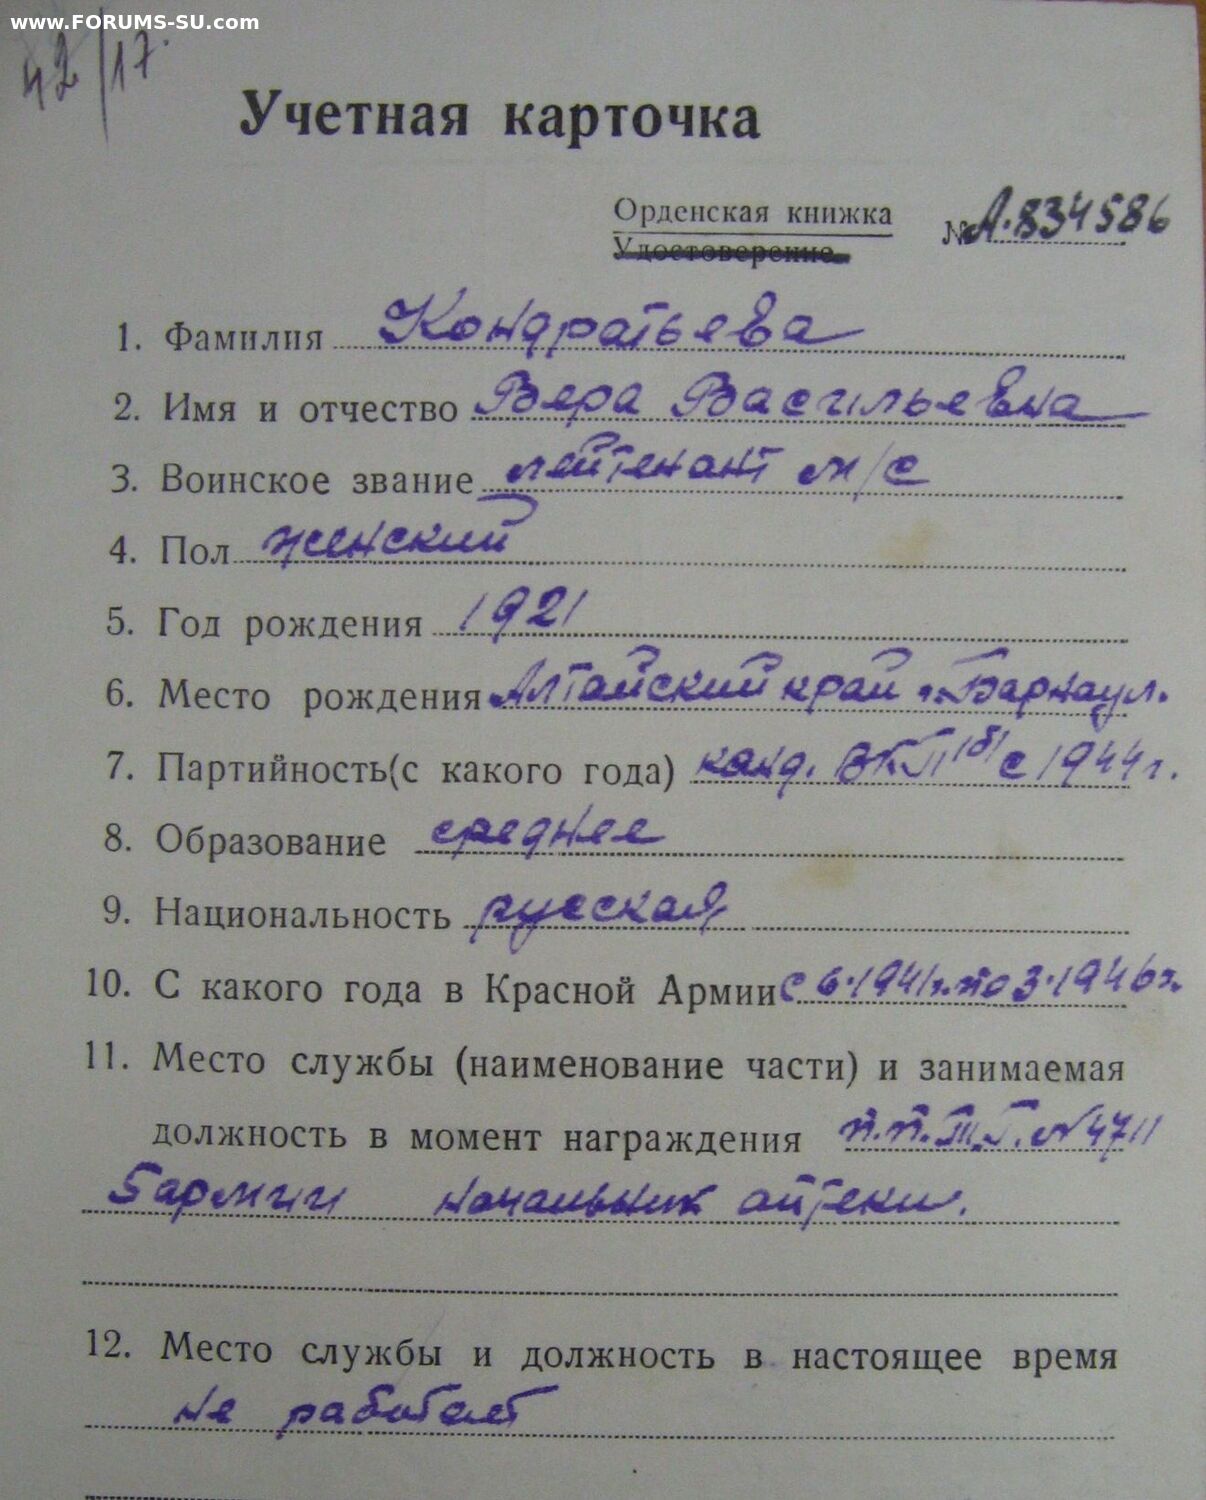 www.FORUMS-SU.com
42/17.
Учетная карточка
Орденская книжка
Удостоверение
№ А.834586
1. Фамилия Кондратьева
2. Имя и отчество Вера Васильевна
3. Воинское звание лейтенант м/с
4. Пол женский
5. Год рождения 1921
6. Место рождения Алтайский край г. Барнаул.
7. Партийность(с какого года) канд. ВКП/б/ с 1944г.
8. Образование среднее
9. Национальность русская
10. С какого года в Красной Армии с 6.1941г. по 3.1946г.
11. Место службы (наименование части) и занимаемая
должность в момент награждения п.п. Т.Г. №4711
5 армии начальник аптеки.
12. Место службы и должность в настоящее время
не работает